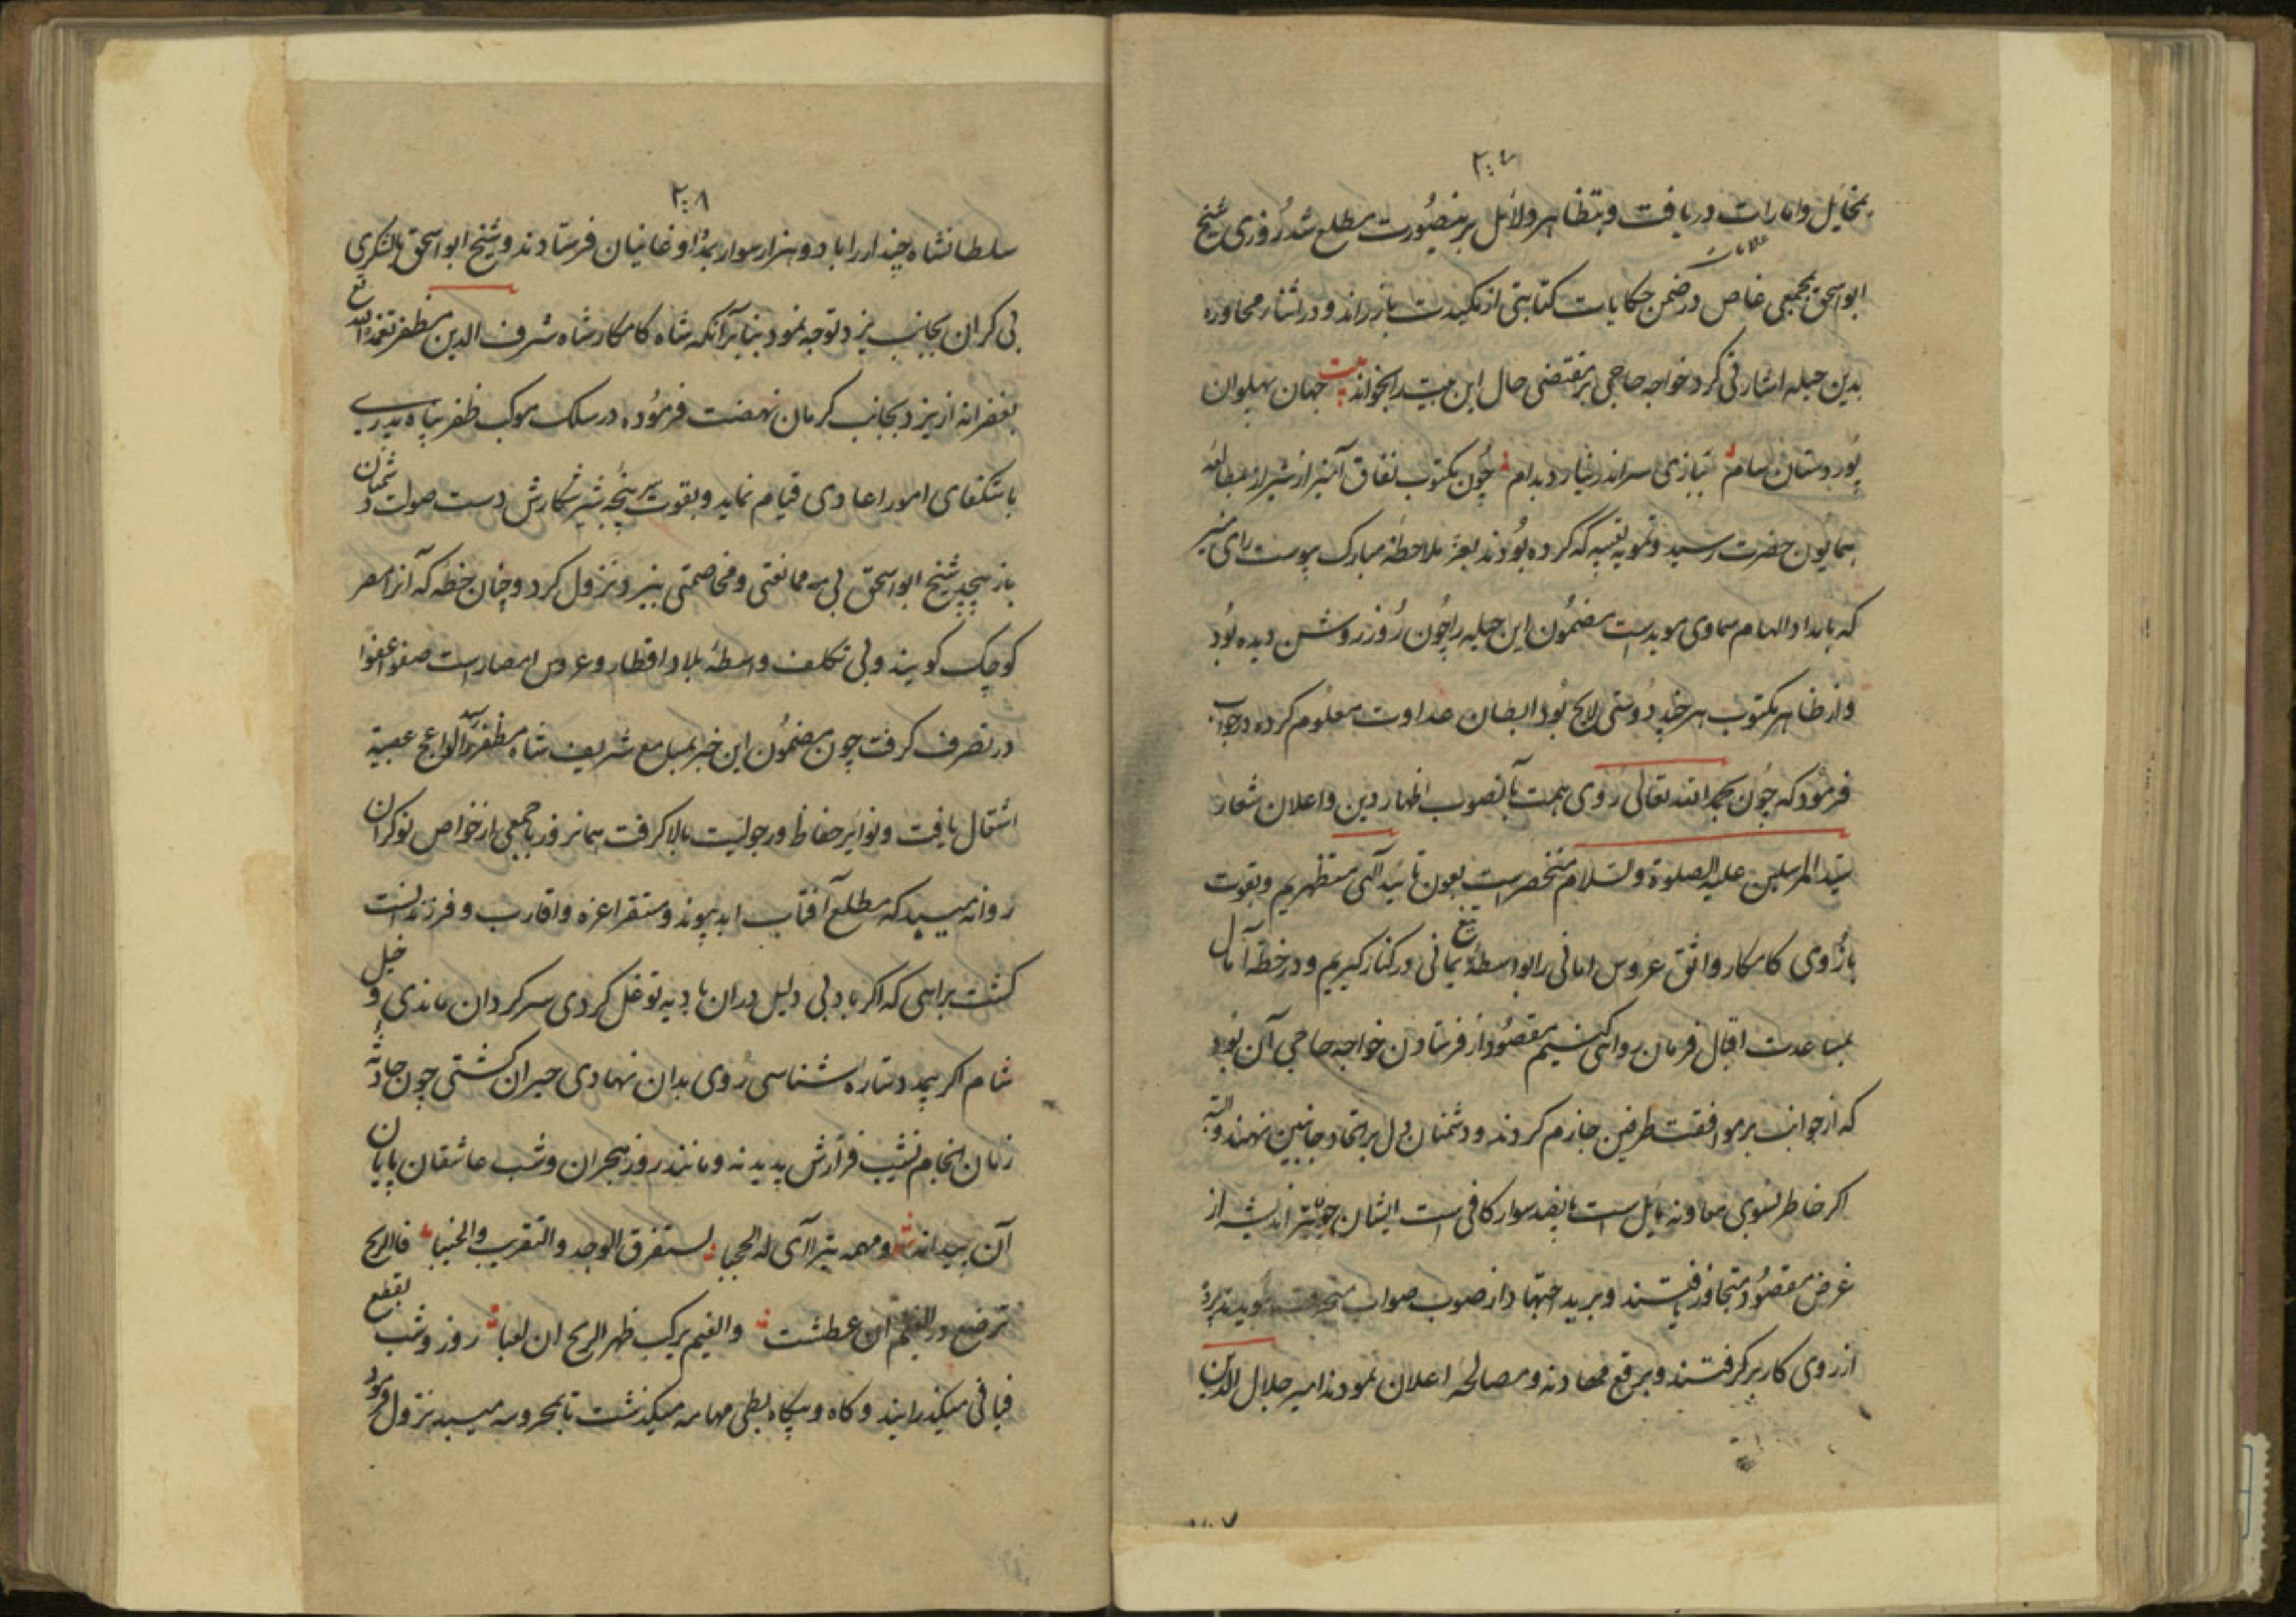 ۲۰۷
بمخایل و امارات دریافت و بتظاهر دلائل بر ینصورت مطلع شد روزی شیخ
علامات
ابو اسحق بجمعی خاص در ضمن حکایات کتابتی ازمکیدت باز راند و در اثنار محاوره
بدین حیله اشارتی کرد خواجه حاجی بر مقتضی حال این بیت را بخواند بیت جهان پهلوان
پور دستان سام ببازی سر اندر نیارد بدام چون مکتوب نفاق آمیز از شیراز بمطالعه
همایون حضرت رسید و تمویه تعبیه که کرده بودند بعز ملاحظه مبارک پیوست رای منیر
که بامداد الهام سماوی مویدست مضمون این حیله را چون روز روشن دیده بود
و از ظاهر مکتوب هر چند دوستی لایح بود ابطان عداوت معلوم کرده در جواب
فرمود که چون بحمد الله تعالی روی همت ما بصوب اظهار دین و اعلان شعار
سید المرسلین علیه الصلوة والسلام منحصرست بعون تائید الهی مستظهریم و بقوت
بازوی کامکار واثق عروس امانی را بواسطه تیغ یمانی در کنار گیریم و در خطه آمال
بمساعدت اقبال فرمان روائی کنیم مقصود از فرستادن خواجه حاجی آن بود
که از جوانب بر موافقت طرفین جازم کردند و دشمنان دل بر اتحاد جانبین نهند و البته
اکر خاطر بسوی معاونه مایل است پانصد سوار کافی است ایشان چون تیر اندیشه از
غرض مقصود متجاوز یافتند و برید اجتهاد از صوب صواب منحرف دیدند پرده
از روی کار برگرفتند و برقع مهادنه و مصالحه اعلان نمودند امیر جلال الدین
۲۰۷
۲۰۸
سلطانشاه جاندار را با دو هزار سوار بمدد اوغانیان فرستادند و شیخ ابو اسحق بالشکری
بی کران بجانب یزد توجه نمود بنابر آنکه شاه کامکار شاه شرف الدین مظفر تغمده الله تع
بغفرانه از یزد بجانب کرمان نهضت فرموده در سلک موکب ظفر پناه پدری
باستکفای امور اعادی قیام نماید و بقوت سرپنجه شیر شکارش دست صولت دشمنان
باز پیچد شیخ ابو اسحق بی ممانعتی و مخاصمتی بیزد نزول کرد و چنان خطه که آنرا مصر
کوچک کویند و بی تکلف واسطه بلاد اقطار و عروس امصار است صفوا عفوا
در تصرف کرفت چون مضمون این خبر بمسامع شریف شاه مظفر رسید لواعج عصبیة
اشتعال یافت و نوایر حفاظ و رجولیت بالا کرفت همانروز باجمعی از خواص نوکران
روانه میبد که مطلع آفتاب ابد پیوند و مستقر اعزه و اقارب و فرزندانست
کشت براهی که اکر باد بی دلیل دران بادیه توغل کردی سرکردان ماندی و خیل
شام اکر بیمدد ستاره شناسی روی بدان نهادی حیران کشتی چون حادثه
زمان انجام نشیب فرازش پدید نه و مانند روز هجران و شب عاشقان پایان
آن پیدا نه ومهمه یترا آی له الحجبا یستفرق الوجد والتقریب والخببا فالریح
ترضع در الغیم ان عطشت والغیم یرکب ظهر الریح ان لغبا روز و شب بقطع
فیافی میکذرانید و کاه و بیکاه بطی مهامه میکذشت تا بمحروسه میبد نزول فرمود